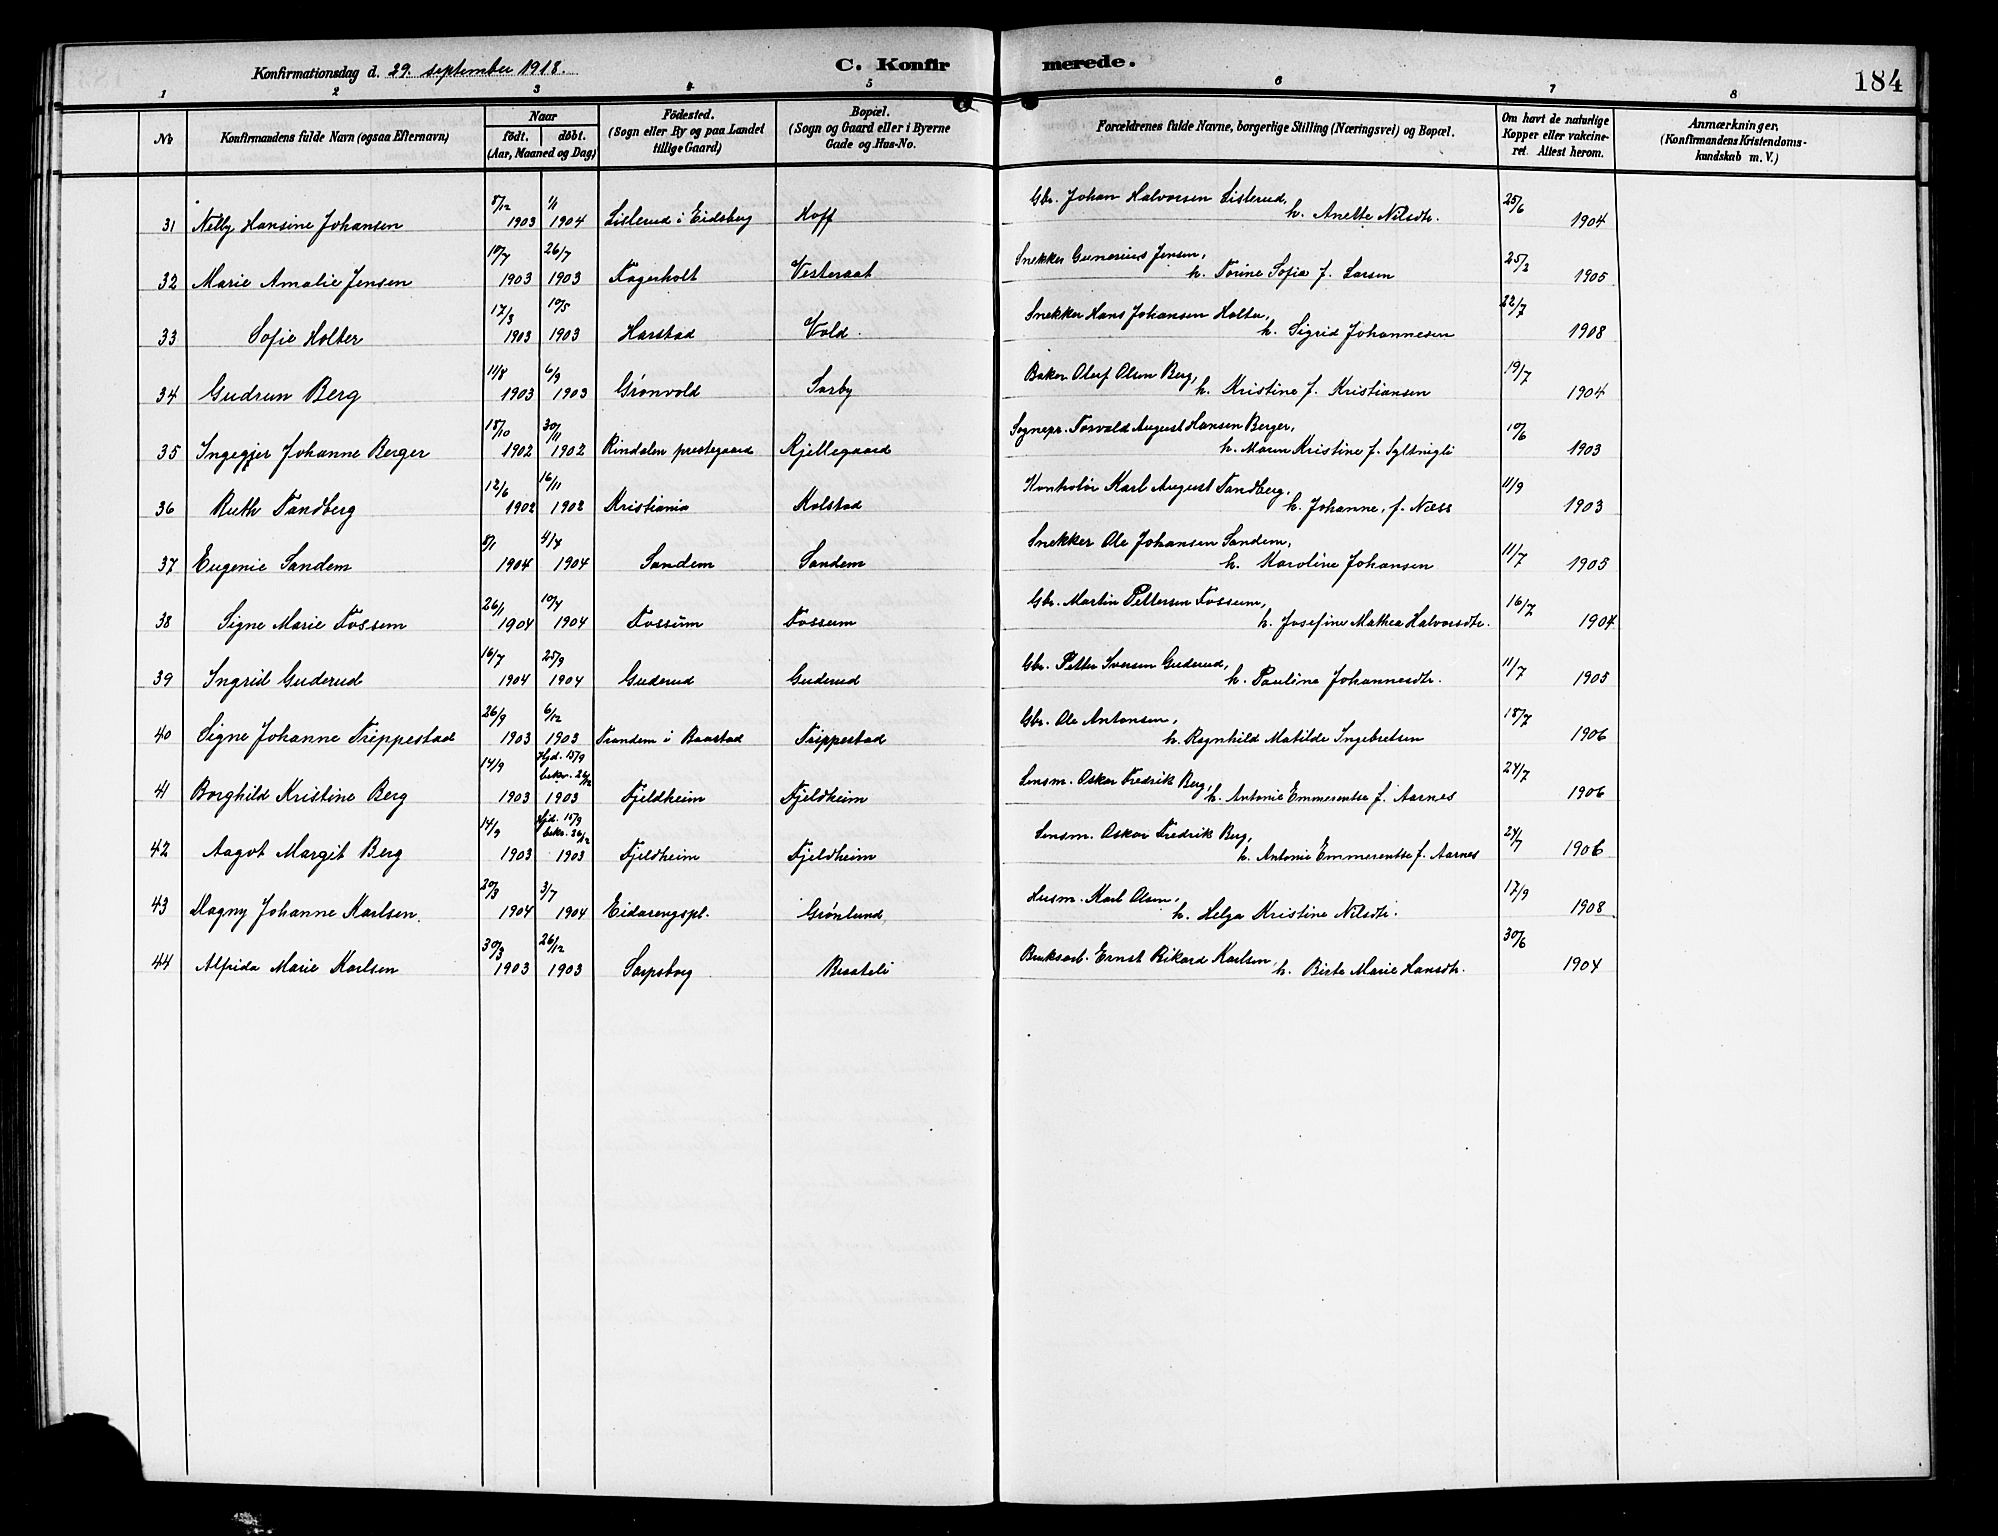 Konfirmationsdag d. 29. september 1918. C. Konfirmerede. 184
1 2 3 4 5 6 7 8
No Konfirmandens fulde Navn (ogsaa Efternavn) Naar födt. döbt. (Aar, Maaned og Dag) Födested. (Sogn eller By og paa Landet tillige Gaard) Bopæl. (Sogn og Gaard eller i Byerne Gade og Hus-No. Forældrenes fulde Navne, borgerlige Stilling (Næringsvei) og Bopæl. Om havt de naturlige Kopper eller vakcineret. Attest herom. Anmærkninger. (Konfirmandens Kristendomskundskab m. V.)
31 Nelly Hansine Johansen 8/12 1903 1/1 1904 Listerud i Eidsberg Hoff Gbr. Johan Halvorsen Listerud, h. Anette Nilsdtr. 25/6 1904
32 Marie Amalie Jensen 10/7 1903 26/7 1903 Fagerholt Vesteraat Snekker Gunerius Jensen, h. Torine Sofie f. Larsen 25/2 1905
33 Sofie Holter 17/3 1903 10/5 1903 Harstad Vold. Snekker Hans Johansen Holter, h. Sigrid Johannesen 22/7 1908
34 Gudrun Berg 11/8 1903 6/9 1903 Grønvold Sorby Baker Oluf Olsen Berg, h. Kristine f. Kristiansen 19/7 1904
35 Ingegjer Johanne Berger 18/10 1902 30/11 1902 Rindalen prestegaard Kjellegaard Sognepr. Torvald August Hansen Berger, h. Maren Kristine f. 10/6 1903
36 Ruth Tandberg 12/6 1902 16/11 1902 Kristiania Kolstad Kontrolør Karl August Tandberg, h. Johanne, f. Næss 11/9 1903
37 Eugenie Sandem 8/1 1904 4/4 1904 Sandem Sandem Snekker Ole Johansen Sandem, h. Karoline Johansen 11/7 1905
38 Signe Marie Fossum 26/1 1904 10/4 1904 Fossum Fossum Gbr. Martin Pettersen Fossum, h. Josefine Mathea Halvorsdtr. 16/7 1904
39 Ingrid Guderud 16/7 1904 25/9 1904 Guderud Guderud Gbr. Petter Iversen Guderud, h. Pauline Johannesdtr. 11/7 1905
40 Signe Johanne Trippestad 26/9 1903 6/12 1903 Trandem i Baastad Trippestad Gbr. Ole Antonsen, h. Ragnhild Matilde Ingebretsen 18/7 1906
41 Borghild Kristine Berg 14/9 1903 Hjd. 15/9 bekr. 26/12 1903 Fjeldheim Fjeldheim Lensm. Oskar Fredrik Berg, h. Antonie Emmerentse f. Aarnes 24/7 1906
42 Aagot Margit Berg 14/9 1903 Hjd. 15/9 bekr. 26/12 1903 Fjeldheim Fjeldheim Lensm. Oskar Fredrik Berg, h. Antonie Emmerentse f. Aarnes 24/7 1906
43 Magny Johanne Karlsen 20/3 1904 3/7 1904 Eidarengspl. Grønlund Husm. Karl Olsen, h. Helga Kristine Nilsdtr. 17/9 1908
44 Alfrida Marie Karlsen 30/3 1903 26/12 1903 Sarpsborg Braateli Bruksarb. Ernst Rikard Karlsen, h. Birte Marie Hansdtr. 30/6 1904